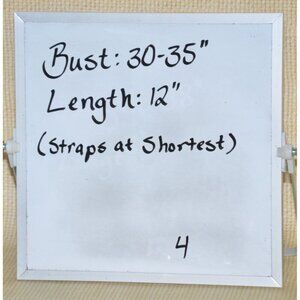 Bust: 30-35"
Length: 12"
(Straps at Shortest)
4